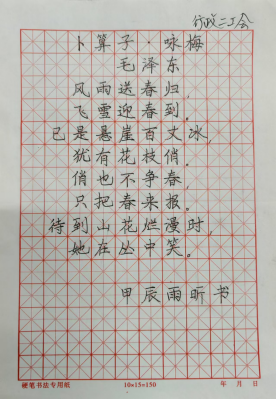 行政二工会
卜算子·咏梅
毛泽东
风雨送春归，
飞雪迎春到。
已是悬崖百丈冰，
犹有花枝俏。
俏也不争春，
只把春来报。
待到山花烂漫时，
她在丛中笑。
甲辰雨昕书
硬笔书法专用纸 10×15=150 年 月 日